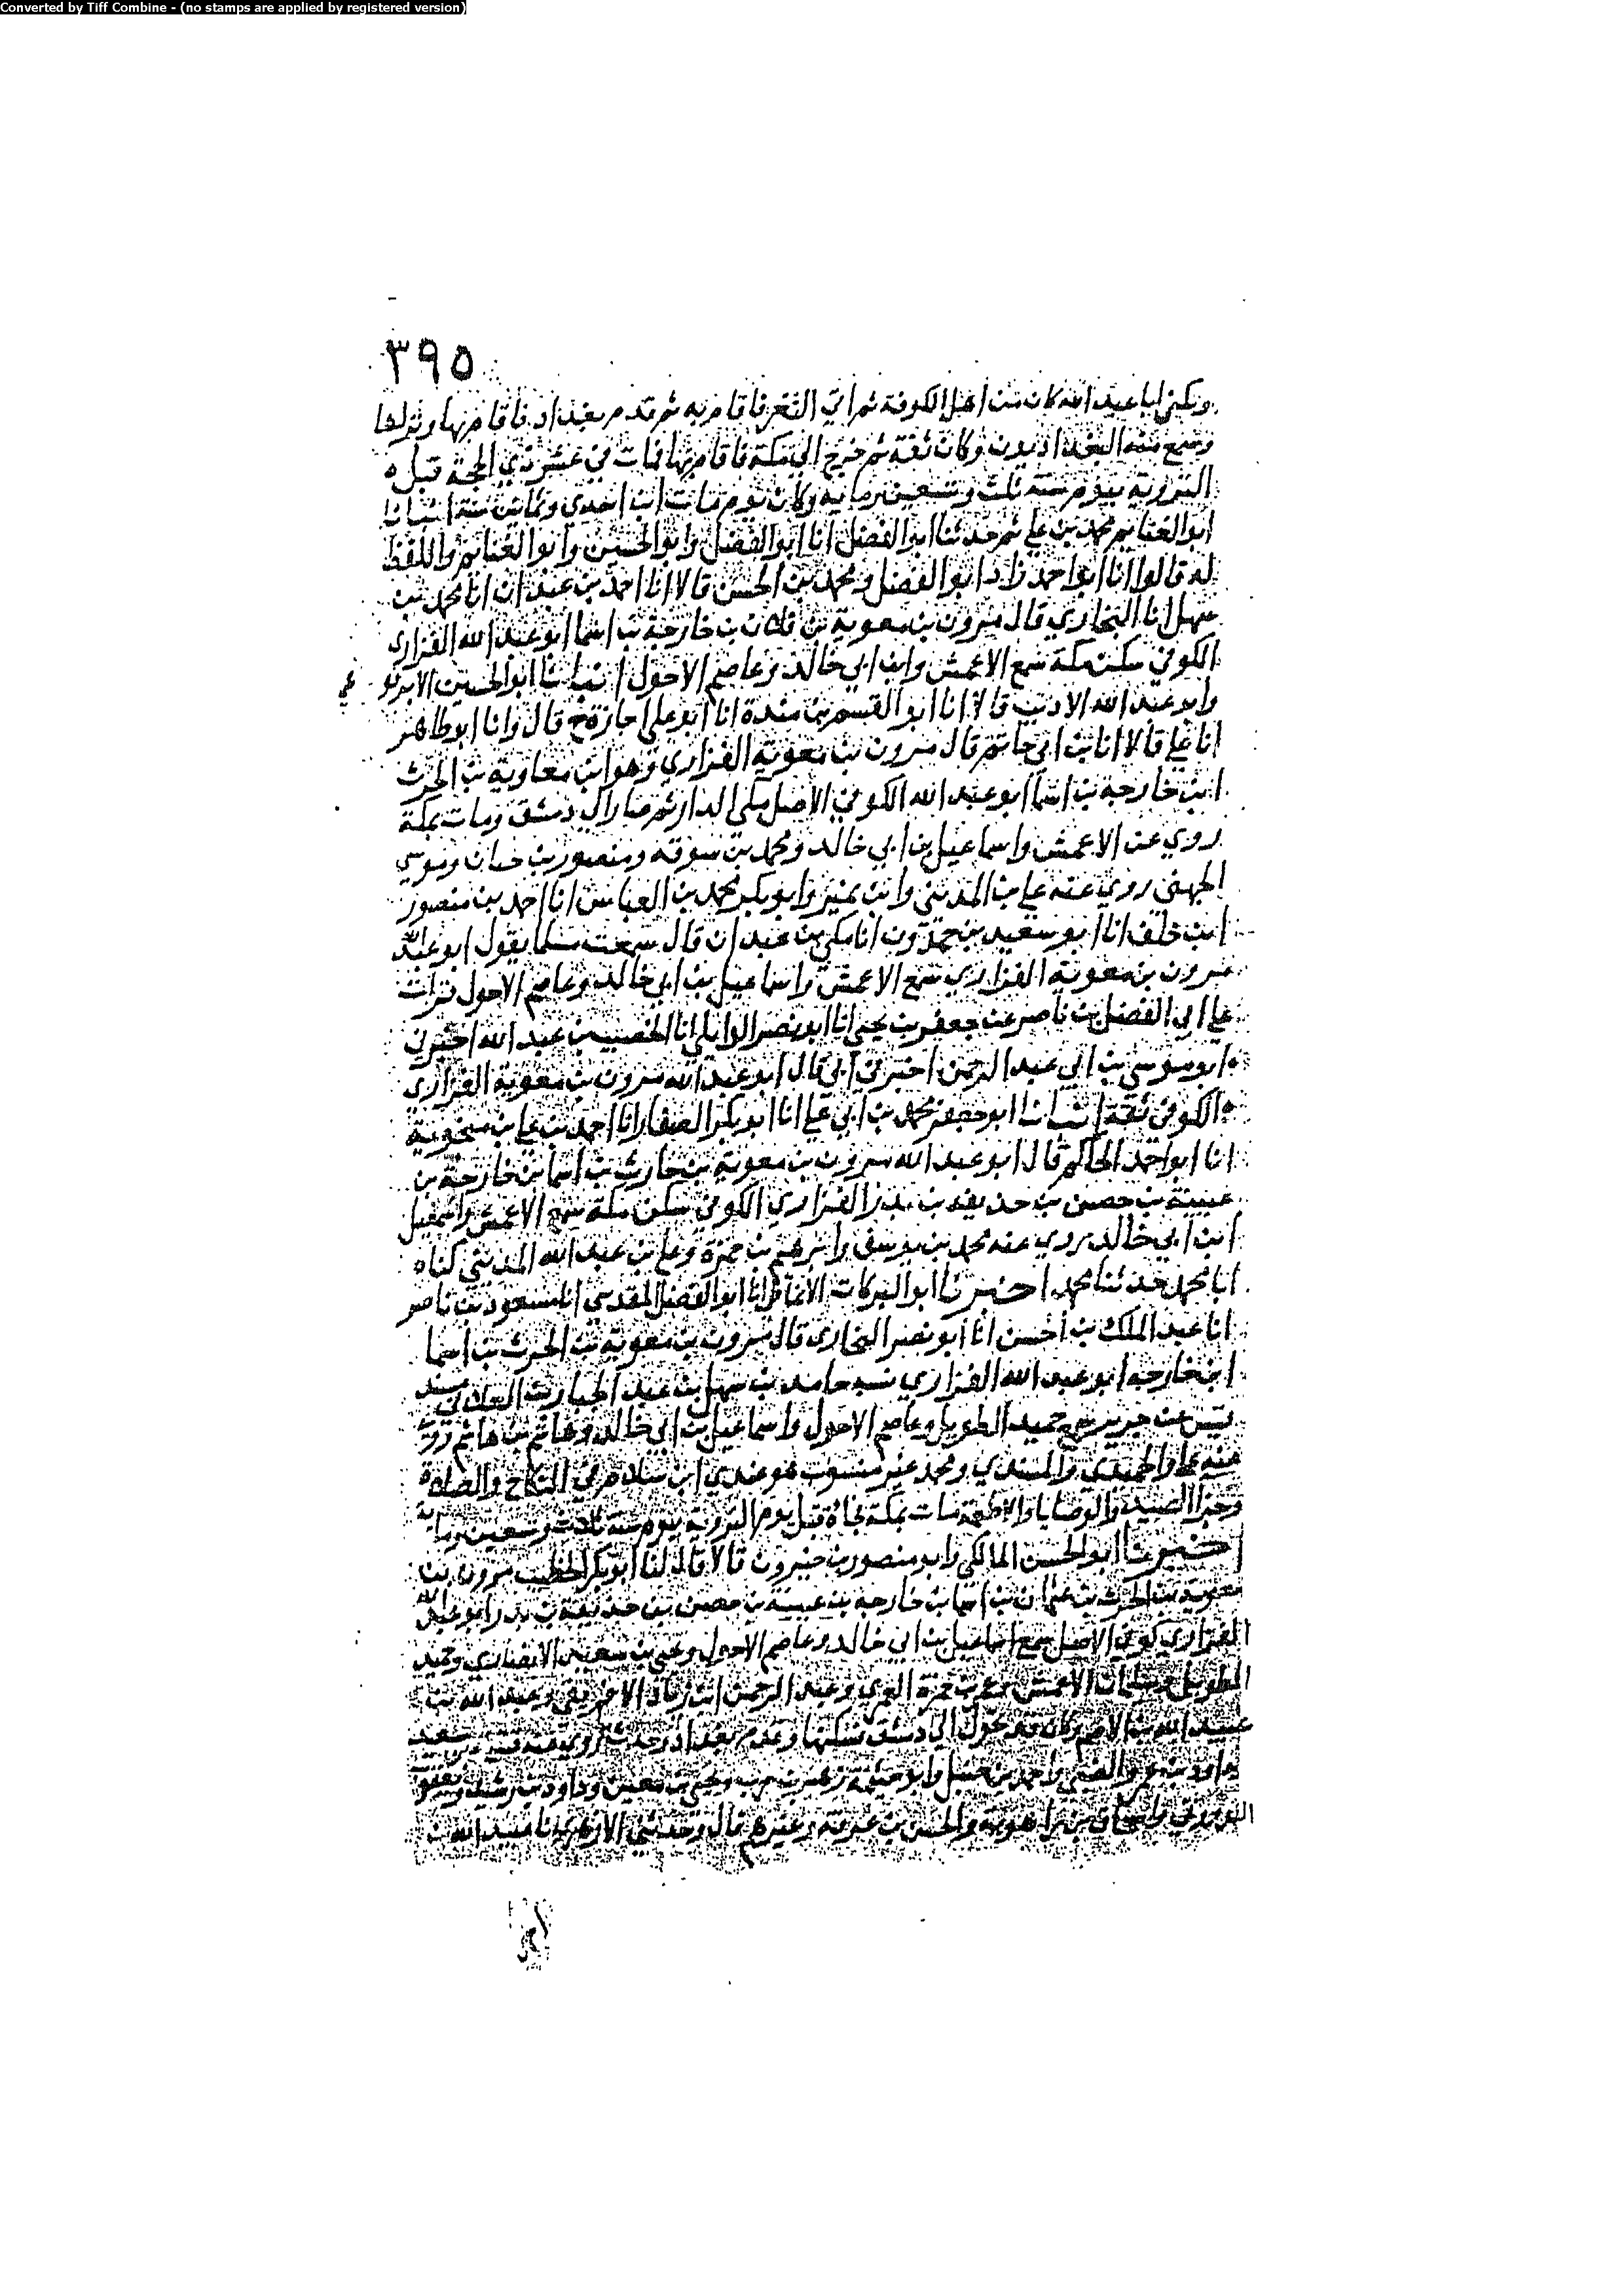 Converted by Tiff Combine - (no stamps are applied by registered version)
٣٩٥
ويكنى ابا عبد الله كان من اهل الكوفة ثم اتى الثغر فاقام به ثم قدم بغداد فاقام بها ونزلها
وسمع منه البغداديون وكان ثقة ثم خرج الى مكة فاقام بها فمات في عشر ذي الحجة قبل
التروية بيوم سنة ثلث وتسعين وماية وكان يوم مات ابن احدى وثمانين سنة انبانا
ابو الغنايم محمد بن علي ثم حدثنا ابو الفضل انا ابو الفضل وابو الحسين وابو الغنايم واللفظ
له قالوا انا ابو احمد زاد ابو الفضل ومحمد بن الحسن قالا انا احمد بن عبدان انا محمد بن
سهل انا البخاري قال مرون بن معوية بن فلان بن خارجة بن اسما ابو عبد الله الفزاري
الكوفي سكن مكة سمع الاعمش وابن ابي خالد وعاصم الاحول انبانا ابو الحسين الابرقو
هي
وابو عبد الله الاديب قالا انا ابو القسم بن مندة انا ابو علي اجازة ح قال وانا ابو طاهر
انا علي قالا انا بن ابي حاتم قال مرون بن معوية الفزاري وهو ابن معاوية بن الحرث
ابن خارجة بن اسما ابو عبد الله الكوفي الاصل مكي الدار ثم صار الى دمشق ومات بمكة
روي عن الاعمش واسماعيل بن ابي خالد ومحمد بن سوقه ومنصور بن حيان وموسي
الجهني روي عنه علي بن المديني وابن نمير وابو بكر محمد بن العباس انا احمد بن منصور
ابن خلف انا ابو سعيد بن حمدون انا مكي بن عبدان قال سمعت مسلما يقول ابو عبد الله
مرون بن معوية الفزاري سمع الاعمش واسماعيل بن ابي خالد وعاصم الاحول قرات
علي ابي الفضل بن ناصر عن جعفر بن يحيى انا ابو نصر الوايلي انا الخصيب بن عبد الله اخبرني
ابو موسي بن ابي عبد الرحمن اخبرني ابي قال ابو عبد الله مرون بن معوية الفزاري
الكوفي ثقة انبانا ابو جعفر محمد بن ابي علي انا ابو بكر الصفار انا احمد بن علي بن منجوية
انا ابو احمد الحاكم قال ابو عبد الله مرون بن معوية بن حارث بن اسما بن خارجة بن
عيينة بن حصن بن حذيفه بن بدر الفزاري الكوفي سكن مكة سمع الاعمش واسمعيل
ابن ابي خالد روي عنه محمد بن يوسف وابرهيم بن حمزة وعلي بن عبد الله المديني كناه
انا محمد حدثنا محمد اخبرنا ابو البركات الانماطي انا ابو الفضل المقدسي انا مسعود بن ناصر
انا عبد الملك بن الحسن انا ابو نصر البخاري قال مرون بن معوية بن الحرث بن اسما
ابن خارجه ابو عبد الله الفزاري نسبه حامد بن سهل بن عبد الجبار بن العلا
عن جرير سمع حميد الطويل وعاصم الاحول واسماعيل بن ابي خالد وهاشم بن هاشم روى
عنه علي والحميدي والمسندي ومحمد غير منسوب هو عندي ابن سلام في النكاح والصلاة
وجزا الصيد والوصايا والاطعمة مات بمكة فجاة قبل يوم التروية بيوم سنة ثلاث وتسعين وماية
اخبرنا ابو الحسن المالكي وابو منصور بن خيرون قالا قال لنا ابو بكر الخطيب مرون بن
معوية بن الحرث بن عثمان بن اسما بن خارجه بن عيينة بن حصن بن حذيفة بن بدر ابو عبد الله
الفزاري كوفي الاصل سمع اسماعيل بن ابي خالد وعاصم الاحول ويحيى بن سعيد الانصاري وحميد
الطويل وسليمان الاعمش وعمر بن حمزة العمري وعبد الرحمن ابن زياد الافريقي وعبد الله بن
عبيد الله بن الاصم وكان قد تحول الى دمشق فسكنها وقدم بغداد وحدث روي عنه قتيبة بن سعيد
وداود بن عمرو الضبي واحمد بن حنبل وابو خيثمة زهير بن حرب ويحيى بن معين وداود بن رشيد ويعقوب
الدورقي واسحاق بن راهوية والحسن بن عرفة وغيرهم قال وحدثني الازهري انا عبيد الله بن